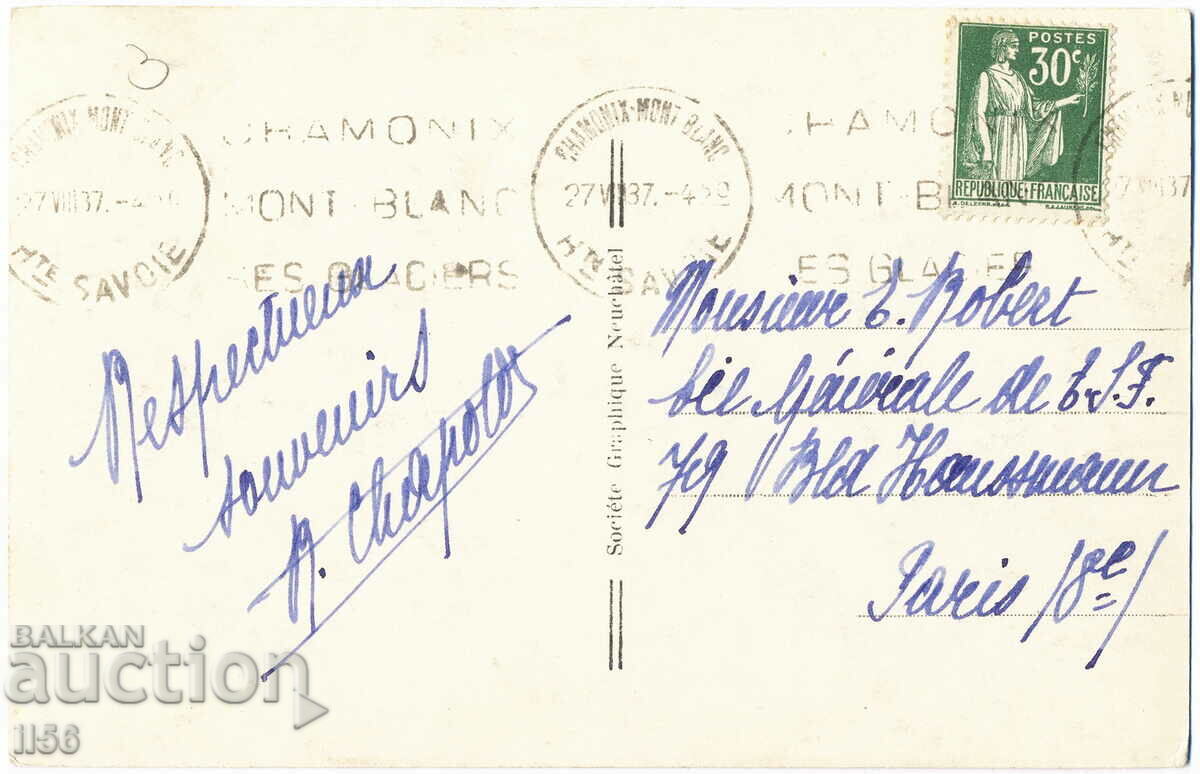 3
CHAMONIX-MONT BLANC
27 VIII 37
HTE SAVOIE
CHAMONIX
MONT-BLANC
SES GLACIERS
CHAMONIX-MONT BLANC
27 VIII 37
HTE SAVOIE
CHAMONIX
MONT-BLANC
SES GLACIERS
POSTES
30c
REPUBLIQUE FRANÇAISE
Respectueux
souvenirs
Société Graphique Neuchâtel
Monsieur E. Robert
Cie Générale de T.S.F.
79 Bld Haussmann
Paris (8e)
BALKAN
auction
1156